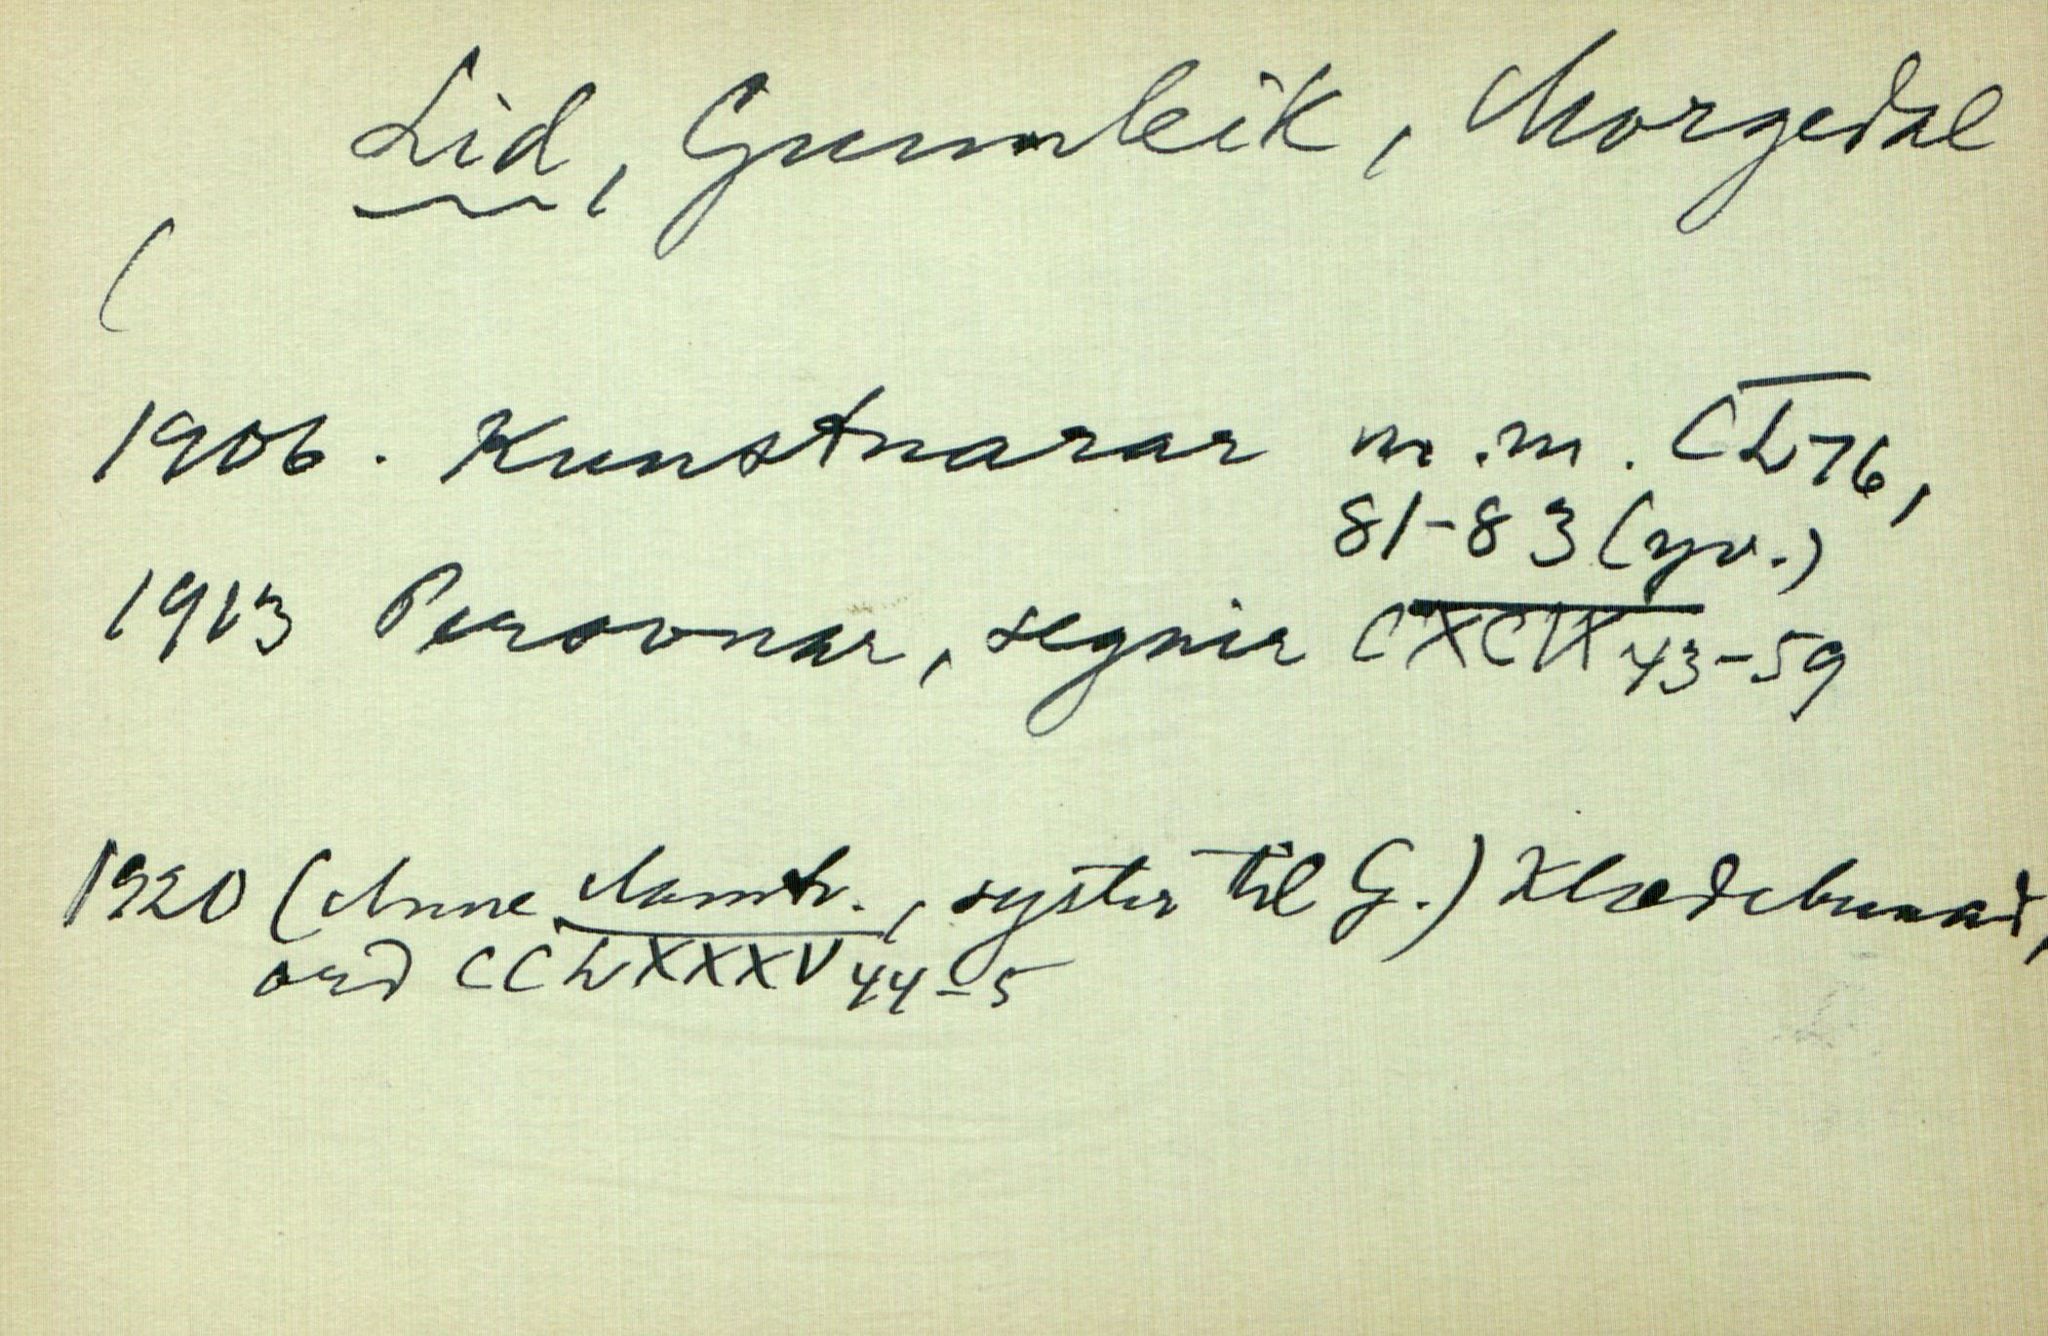 Lid, Gunnleik, Morgedal
(
1906. Kunstnarar m.m. CL 76,
81-83 (yv.)
1913 Personar, segnir CXCIX 43-59
1920 (Anne, syster til G.) Klædebunad,
ord CCLXXXV 44-5